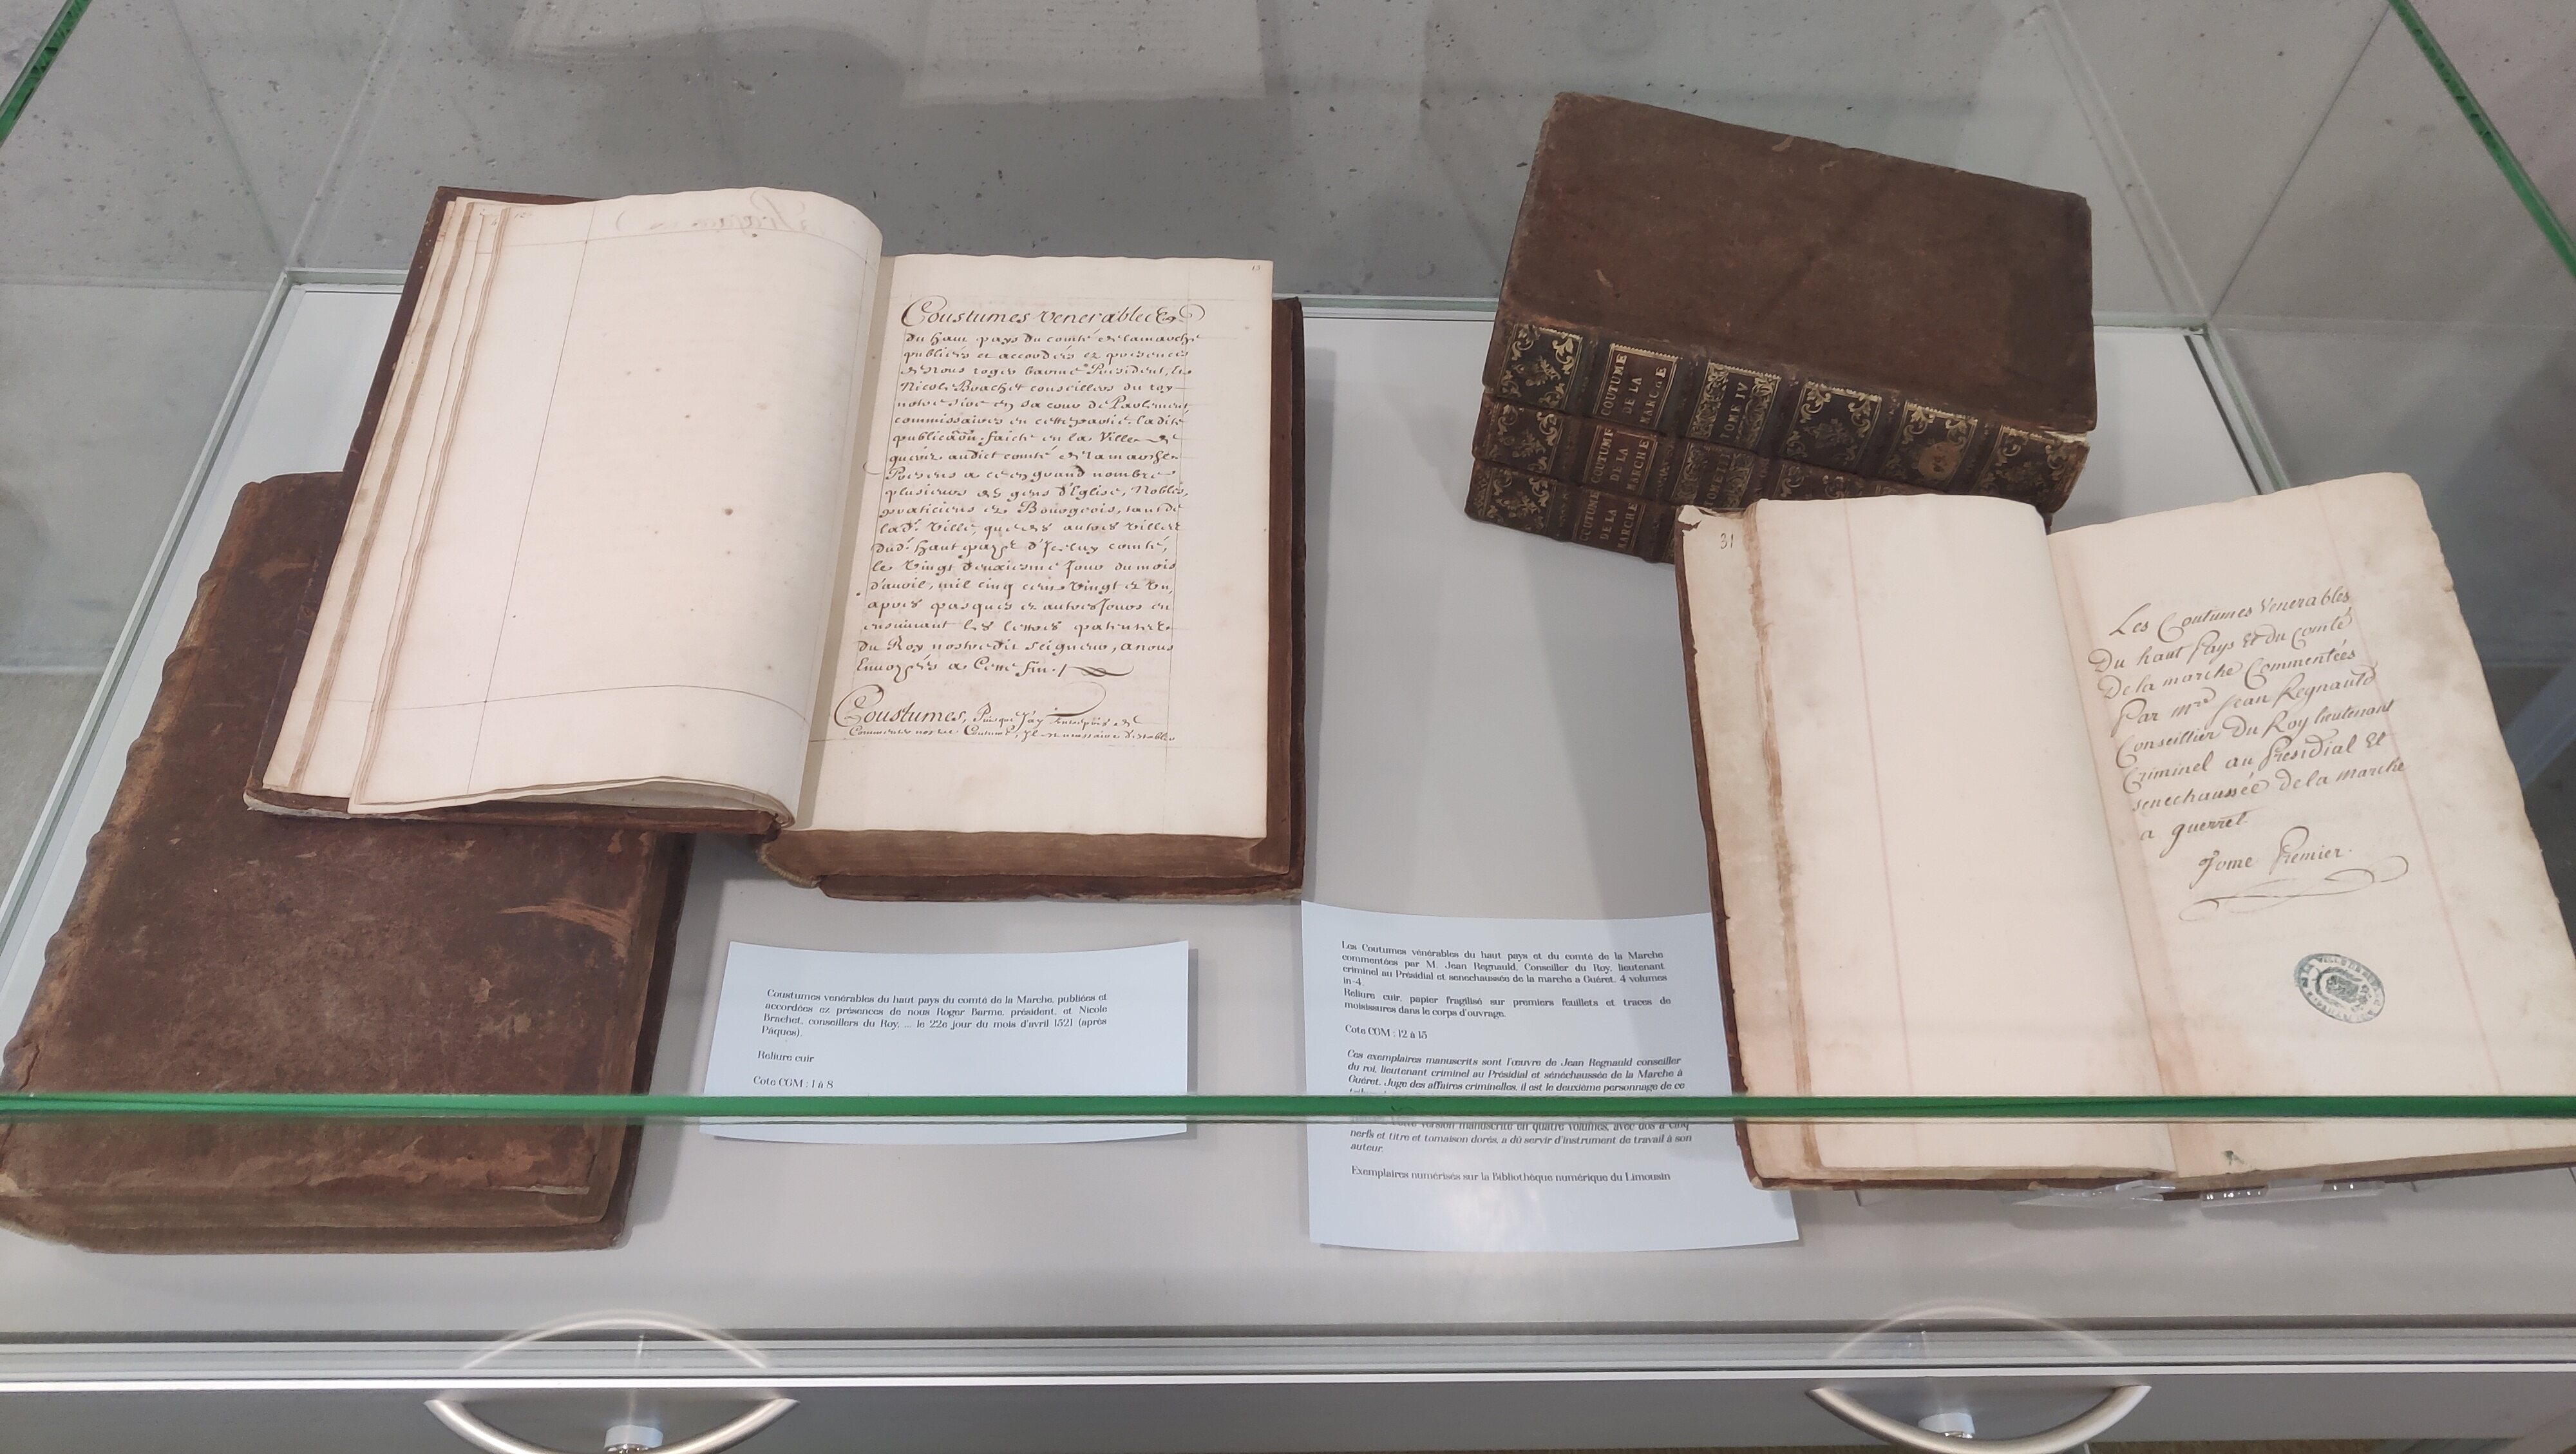 Coustumes venerables
du haut pays du comté de la marche
publiées et accordées ez presences
de Nous roger barme President, et
Nicole Brachet conseillers du roy
notre Sire en sa cour de Parlement,
commissaires en cette partie, ladite
publicãon faicte en la Ville de
audict comté de la marche
Presens a ce en grand nombre
plusieurs des gens d'Eglise, Nobles,
praticiens et Bourgeois, tant de
lad. Ville, que des autres Villes
dud. haut d'Iceluy comté,
le Vingt deuxiesme Jour du mois
d'avril, mil cinq cens Vingt et Un,
apres pasques et autres Jours en
ensuivant les lettres patentes
du Roy nostredit seigneur, a nous
Envoyées a Cette fin.
Coustumes, Puisque
13
COUTUME
DE LA
MARCHE
TOME IV
COUTUME
DE LA
MARCHE
TOME
COUTUME
DE LA
MARCHE
31
Les Coutumes Venerables
Du haut Pays Et du Comté
De la marche Commentées
Par mre Jean Regnauld
Conseillier Du Roy lieutenant
Criminel au Presidial Et
senechaussée de la marche
a guerret.
Tome Premier.
Coustumes venérables du haut pays du comté de la Marche, publiées et
accordées ez présences de nous Roger Barme, président, et Nicole
Brachet, conseillers du Roy, ... le 22e jour du mois d'avril 1521 (après
Pâques).
Reliure cuir
Cote CGM : 1 à 8
Les Coutumes vénérables du haut pays et du comté de la Marche
commentées par M. Jean Regnauld, Conseiller du Roy, lieutenant
criminel au Présidial et senechaussée de la marche a Guéret. 4 volumes
in-4.
Reliure cuir, papier fragilisé sur premiers feuillets et traces de
moisissures dans le corps d'ouvrage.
Cote CGM : 12 à 15
Ces exemplaires manuscrits sont l'œuvre de Jean Regnauld conseiller
du roi, lieutenant criminel au Présidial et sénéchaussée de la Marche à
Guéret. Juge des affaires criminelles, il est le deuxième personnage de ce
version manuscrite en quatre volumes, avec dos à cinq
nerfs et titre et tomaison dorés, a dû servir d'instrument de travail à son
auteur.
Exemplaires numérisés sur la Bibliothèque numérique du Limousin